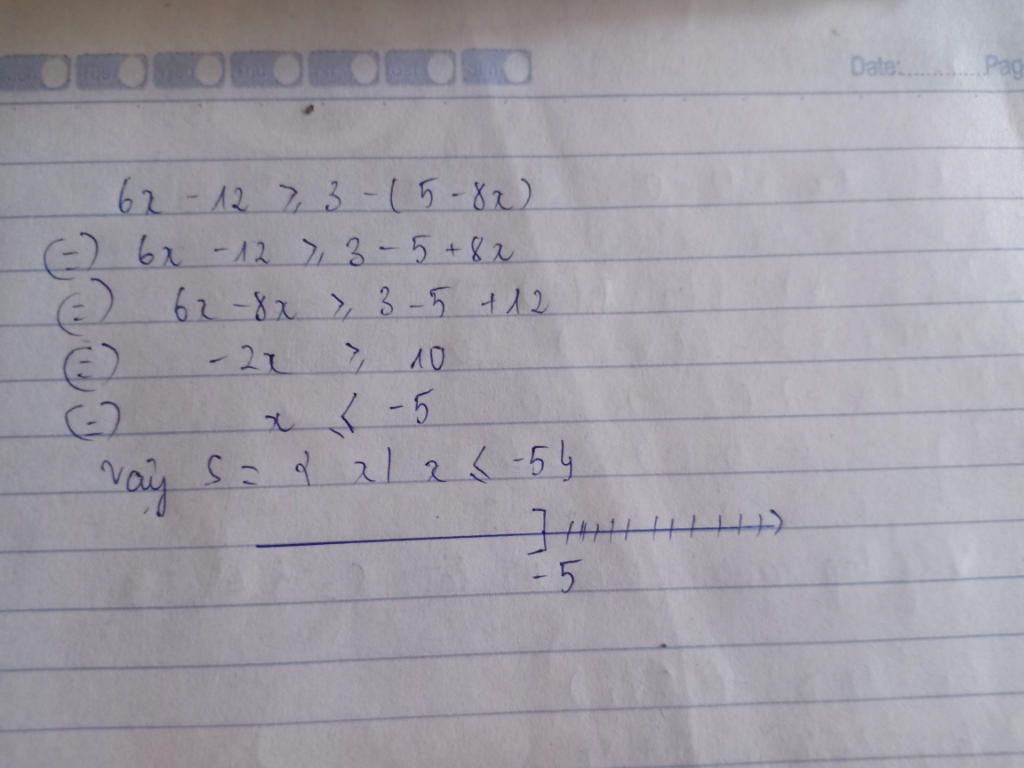 Date:............Pag
6x - 12 ≥ 3 - ( 5 - 8x )
(=) 6x - 12 ≥ 3 - 5 + 8x
(=) 6x - 8x ≥ 3 - 5 + 12
(=) - 2x ≥ 10
(=) x ≤ -5
Vậy S = { x | x ≤ -5 }
-5